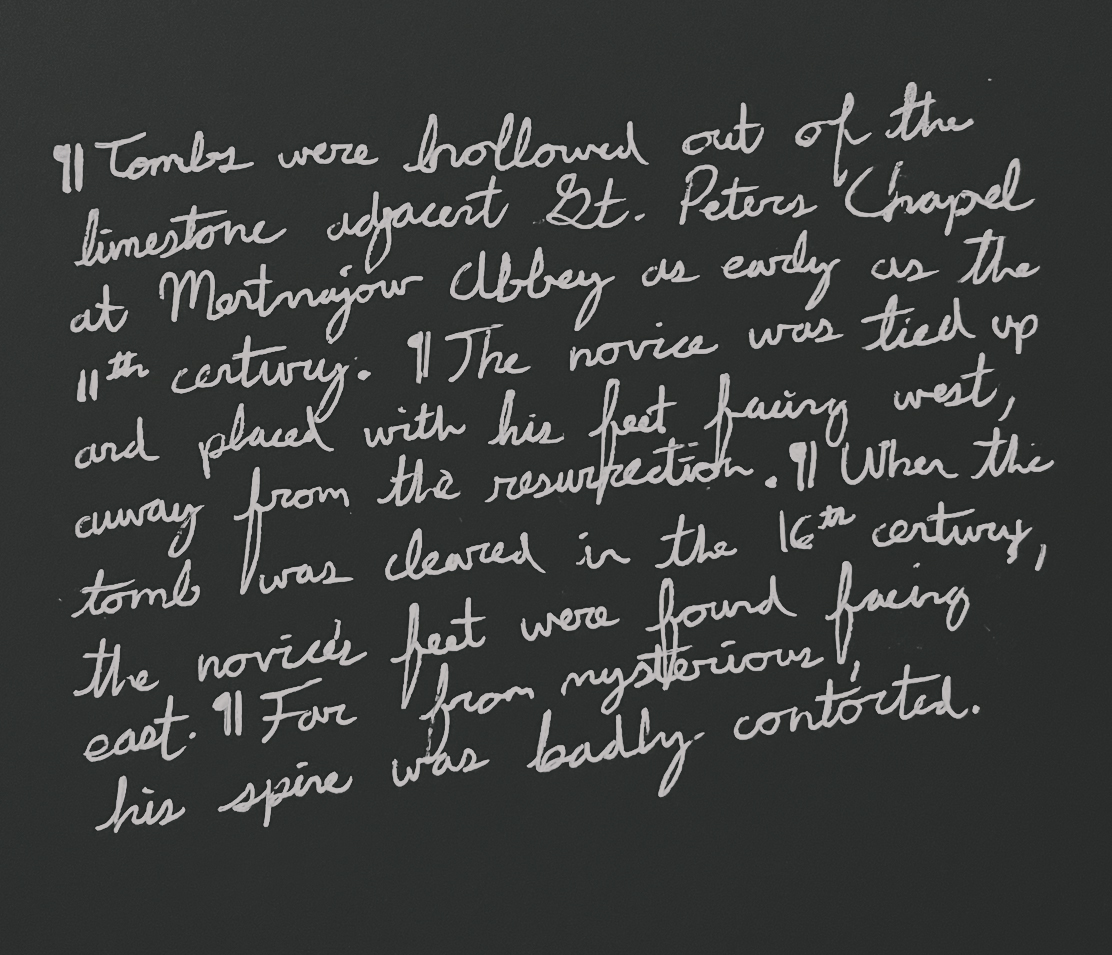 ¶ Tombs were hollowed out of the
limestone adjacent St. Peters Chapel
at Montmajour Abbey as early as the
11th century. ¶ The novice was tied up
and placed with his feet facing west,
away from the resurrection. ¶ When the
tomb was cleared in the 16th century,
the novice's feet were found facing
east. ¶ Far from mysterious,
his spine was badly contorted.